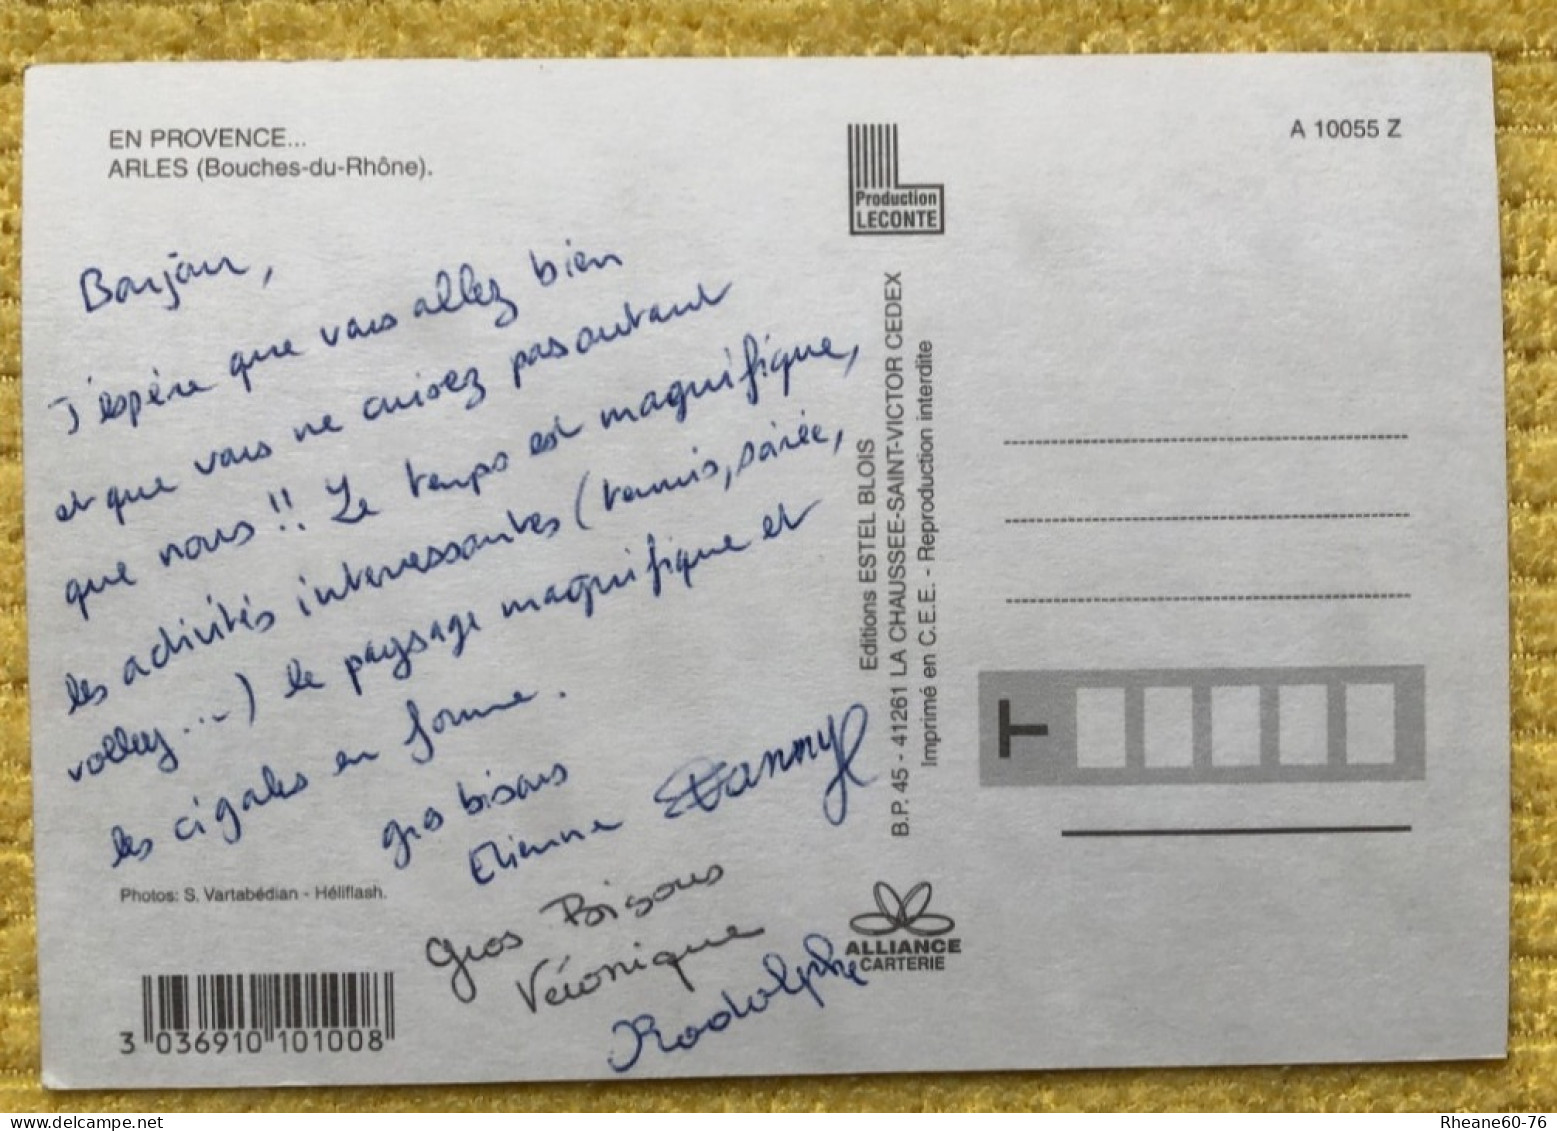 EN PROVENCE...
ARLES (Bouches-du-Rhône).
Bonjour,
J'espère que vous allez bien
et que vous ne cuisez pas autant
que nous!! Le temps est magnifique,
les activités interressantes (tennis, soirée,
volley...) le paysage magnifique et
les cigales en forme.
gros bisous
Etienne Fanny
Gros Bisous
Véronique
Rodolphe
Photos: S. Vartabédian - Héliflash.
3 036910 101008
Production
LECONTE
Editions ESTEL BLOIS
B.P. 45 - 41261 LA CHAUSSEE-SAINT-VICTOR CEDEX
Imprimé en C.E.E. - Reproduction interdite
ALLIANCE
CARTERIE
A 10055 Z
T
Rheane60-76